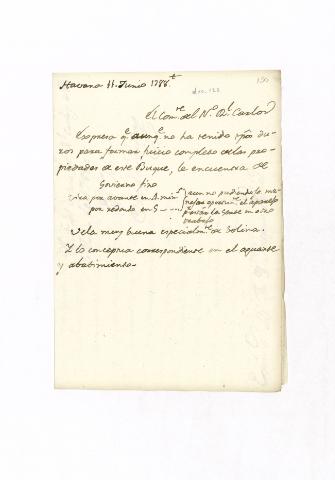 Havana 11. Junio 1786
doc. 122
El Com.te del N.o R.l Carlos
Expresa q.e aunq.e no ha tenido tpo. du-
ros para formar juicio completo de las pro-
piedades de este Buque, le encuentra de
Govierno fino
Vira por avante en
por redondo en 5
aun no pudiendo
trabajo
Vela muy buena especialm.te de bolina.
Y lo conceptua correspondiente en el aguante
y abatimiento.